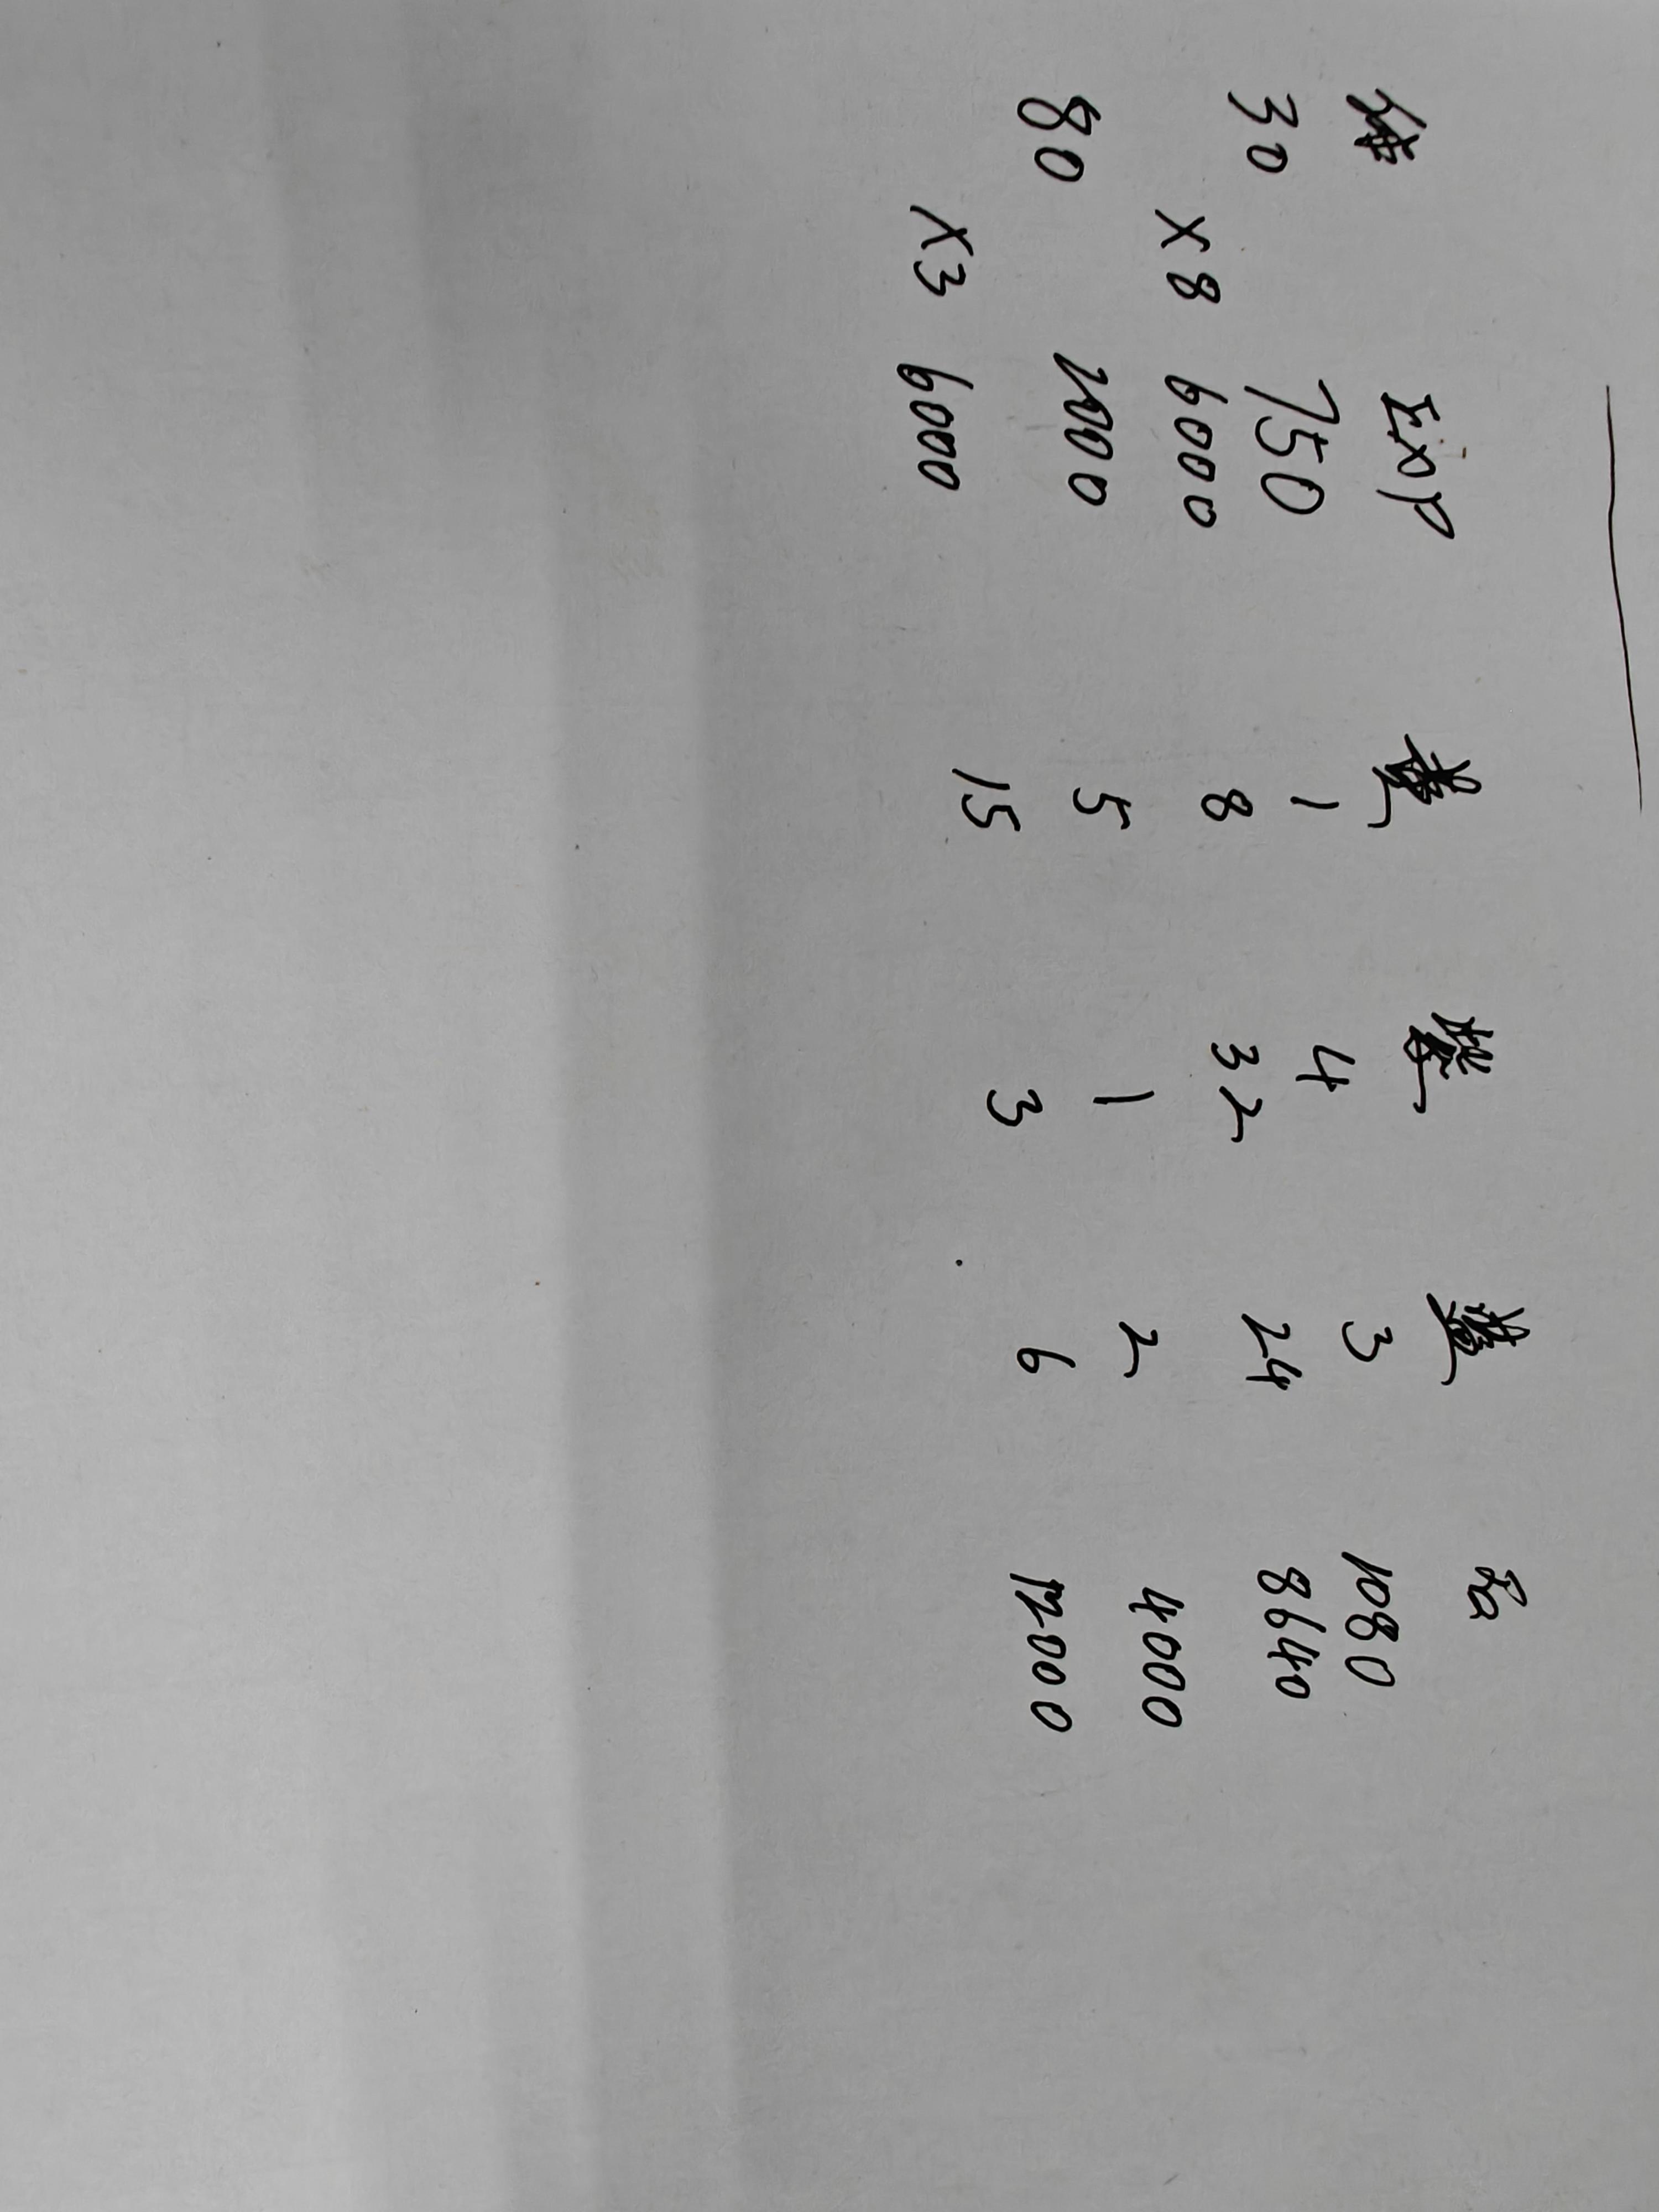 体 EXP 黄 紫 蓝
30 750 1 4 3 1080
×8 6000 8 32 24 8640
80 2000 5 1 2 4000
×3 6000 15 3 6 12000